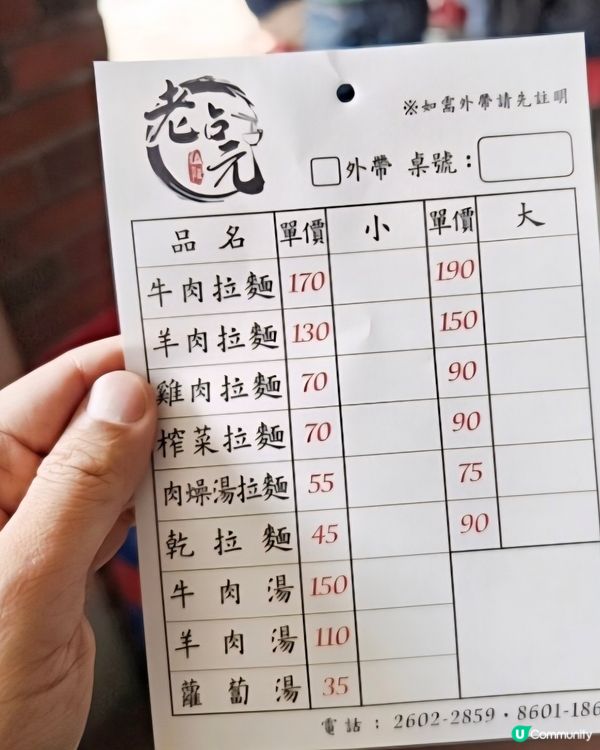 老占元
※如需外帶請先註明
外帶 桌號：
品名 單價 小 單價 大
牛肉拉麵 170 190
羊肉拉麵 130 150
雞肉拉麵 70 90
榨菜拉麵 70 90
肉燥湯拉麵 55 75
乾拉麵 45 90
牛肉湯 150
羊肉湯 110
蘿蔔湯 35
電話：2602-2859・8601-186
U Community